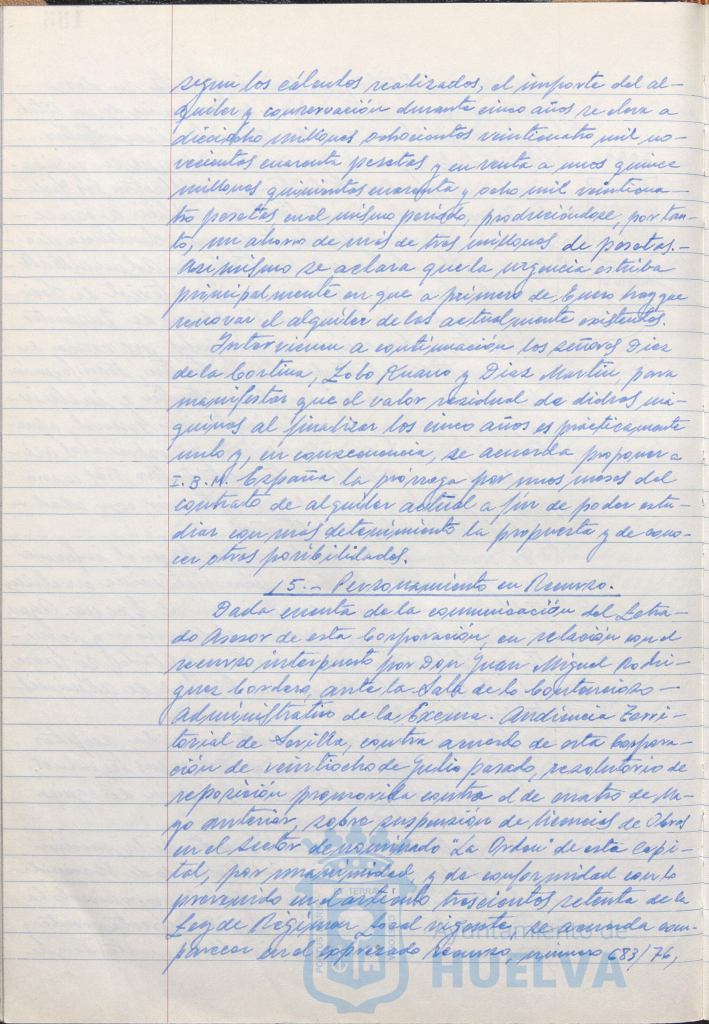 segun los cálculos realizados, el importe del al-
quiler y conservación durante cinco años se eleva a
dieciocho millones ochocientos veinticuatro mil no-
vecientas cuarenta pesetas y en venta a unos quince
millones quinientas cuarenta y ocho mil veinticua-
tro pesetas en el mismo periodo, produciéndose, por tan-
to, un ahorro de más de tres millones de pesetas.-
Asimismo se aclara que la urgencia estriba
principalmente en que a primero de Enero hay que
renovar el alquiler de los actualmente existentes.
Intervienen a continuación los señores Diaz
de la Cortina, Lobo Ruano y Diaz Martin para
manifestar que el valor residual de dichas má-
quinas al finalizar los cinco años es prácticamente
nulo y, en consecuencia, se acuerda proponer a
I.B.M. España la prórroga por unos meses del
contrato de alquiler actual a fin de poder estu-
diar con más detenimiento la propuesta y de cono-
cer otras posibilidades.
15.- Personamiento en Recurso.
Dada cuenta de la comunicación del Letra-
do Asesor de esta Corporación, en relación con el
recurso interpuesto por Don Juan Miguel Rodri-
guez Cordero, ante la Sala de lo Contencioso-
Administrativo de la Excma. Audiencia Terri-
torial de Sevilla, contra acuerdo de esta Corpora-
ción de veintiocho de Julio pasado, resolutorio de
reposición promovida contra el de cuatro de Ma-
yo anterior, sobre suspensión de licencias de Obras
en el Sector denominado "La Orden" de esta Capi-
tal, por unanimidad y de conformidad con lo
prevenido en el artículo trescientos setenta de la
Ley de Régimen Local vigente, se acuerda com-
parecer en el expresado recurso, número 683/76,
Ayuntamiento de
HUELVA